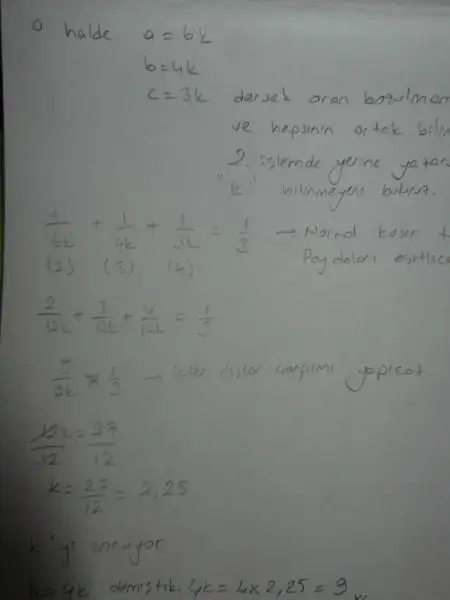 O halde a = 6k
b = 4k
c = 3k dersek oran bozulmam
ve hepsinin ortak bilin
2. işlemde yerine yazar
"k" bilinmeyeni buluruz.
1/6k + 1/4k + 1/3k = 1/3 → Normal kesir t
(2) (3) (4) Paydaları eşitlice
2/12k + 3/12k + 4/12k = 1/3
9/12k × 1/3 → içler dışlar çarpımı yapıcaz.
12k/12 = 27/12
k = 27/12 = 2,25
b'yi soruyor
b = 4k demiştik. 4k = 4 x 2,25 = 9